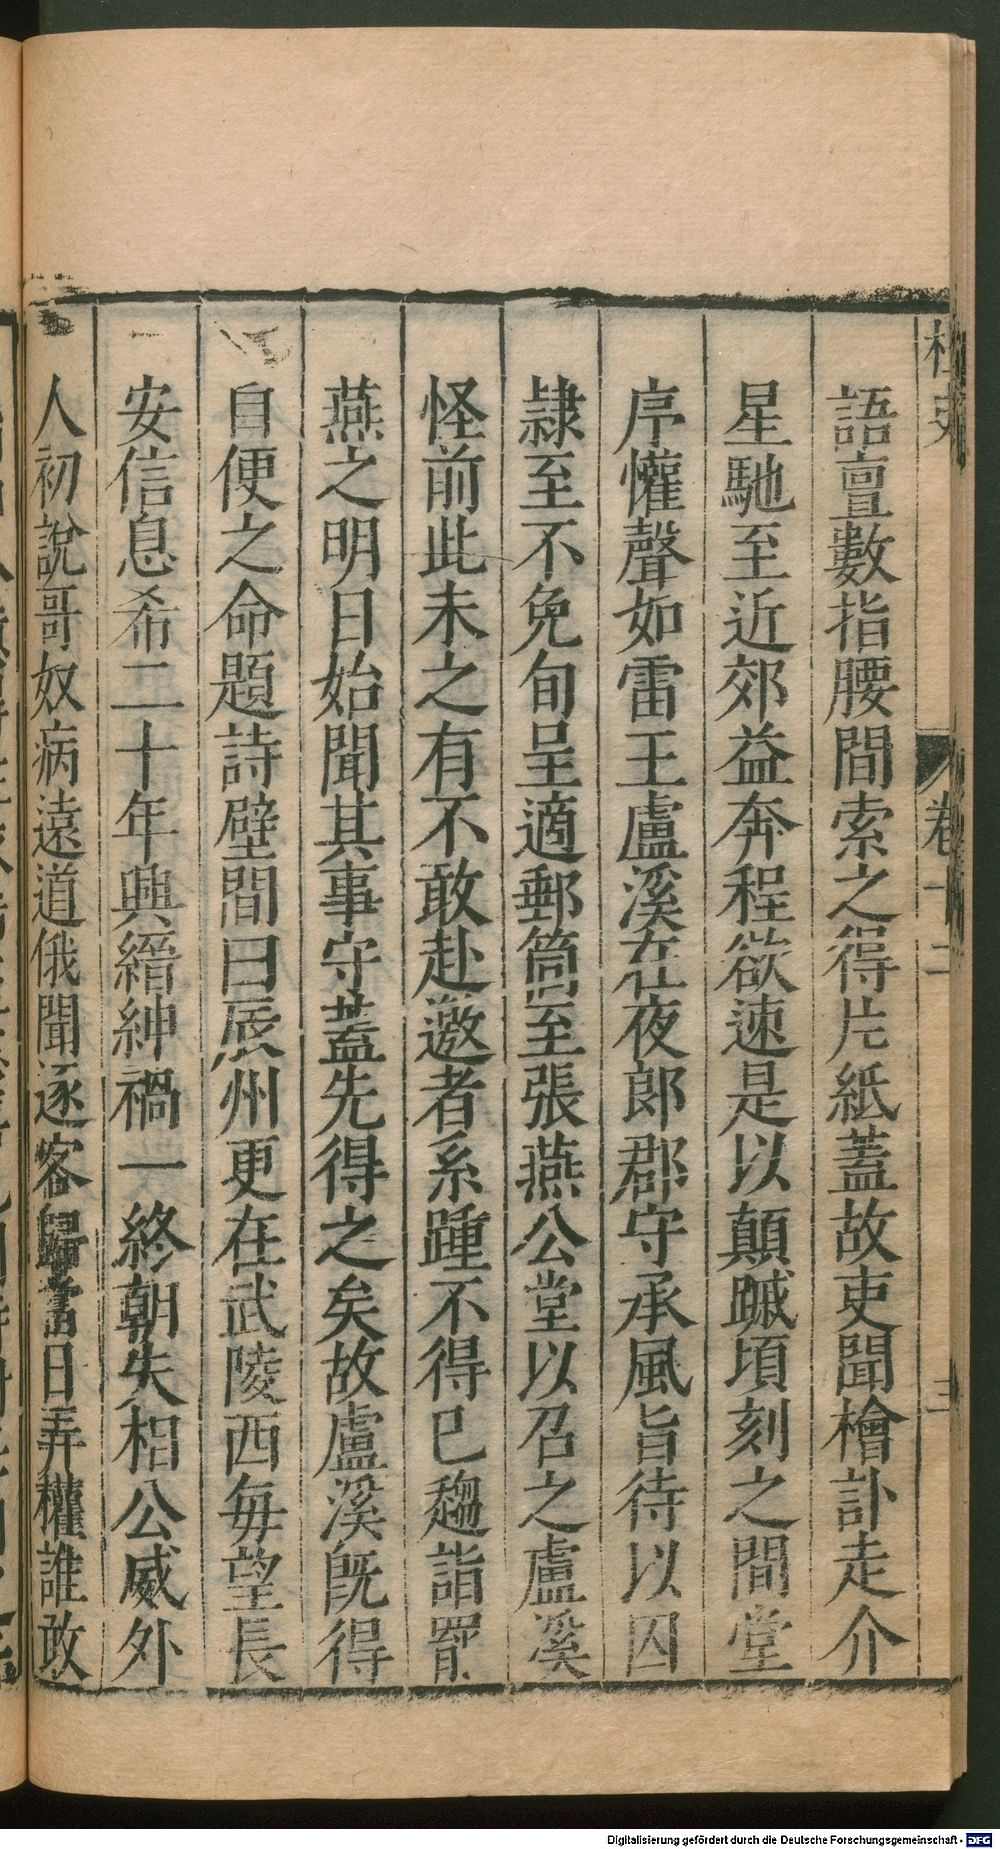 桯史 卷十二 三
語亶數指腰間索之得片紙蓋故吏聞檜訃走介
星馳至近郊益奔程欲速是以顛蹶頃刻之間堂
序懽聲如雷王盧溪在夜郎郡守承風旨待以囚
隷至不免旬呈適郵筒至張燕公堂以召之盧溪
怪前此未之有不敢赴邀者系踵不得已趨詣罷
燕之明日始聞其事守蓋先得之矣故盧溪旣得
自便之命題詩壁間曰辰州更在武陵西毎望長
安信息希二十年興縉紳禍一終朝失相公威外
人初說哥奴病遠道俄聞逐客歸當日弄權誰敢
Digitalisierung gefördert durch die Deutsche Forschungsgemeinschaft - DFG